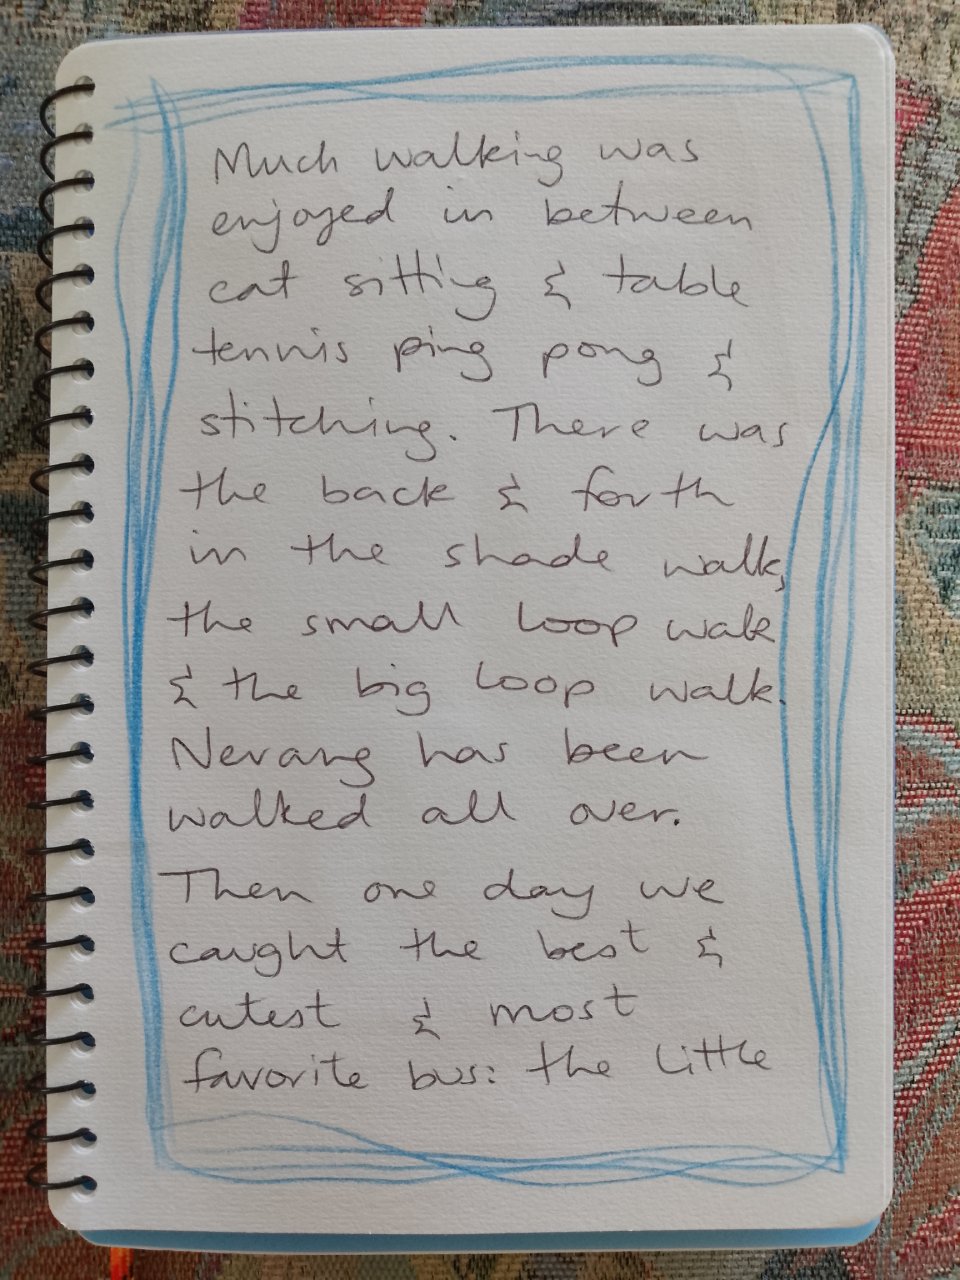 Much walking was
enjoyed in between
cat sitting & table
tennis ping pong &
stitching. There was
the back & forth
in the shade walk,
the small loop walk
& the big loop walk.
Nerang has been
walked all over.
Then one day we
caught the best &
cutest & most
favorite bus: the little